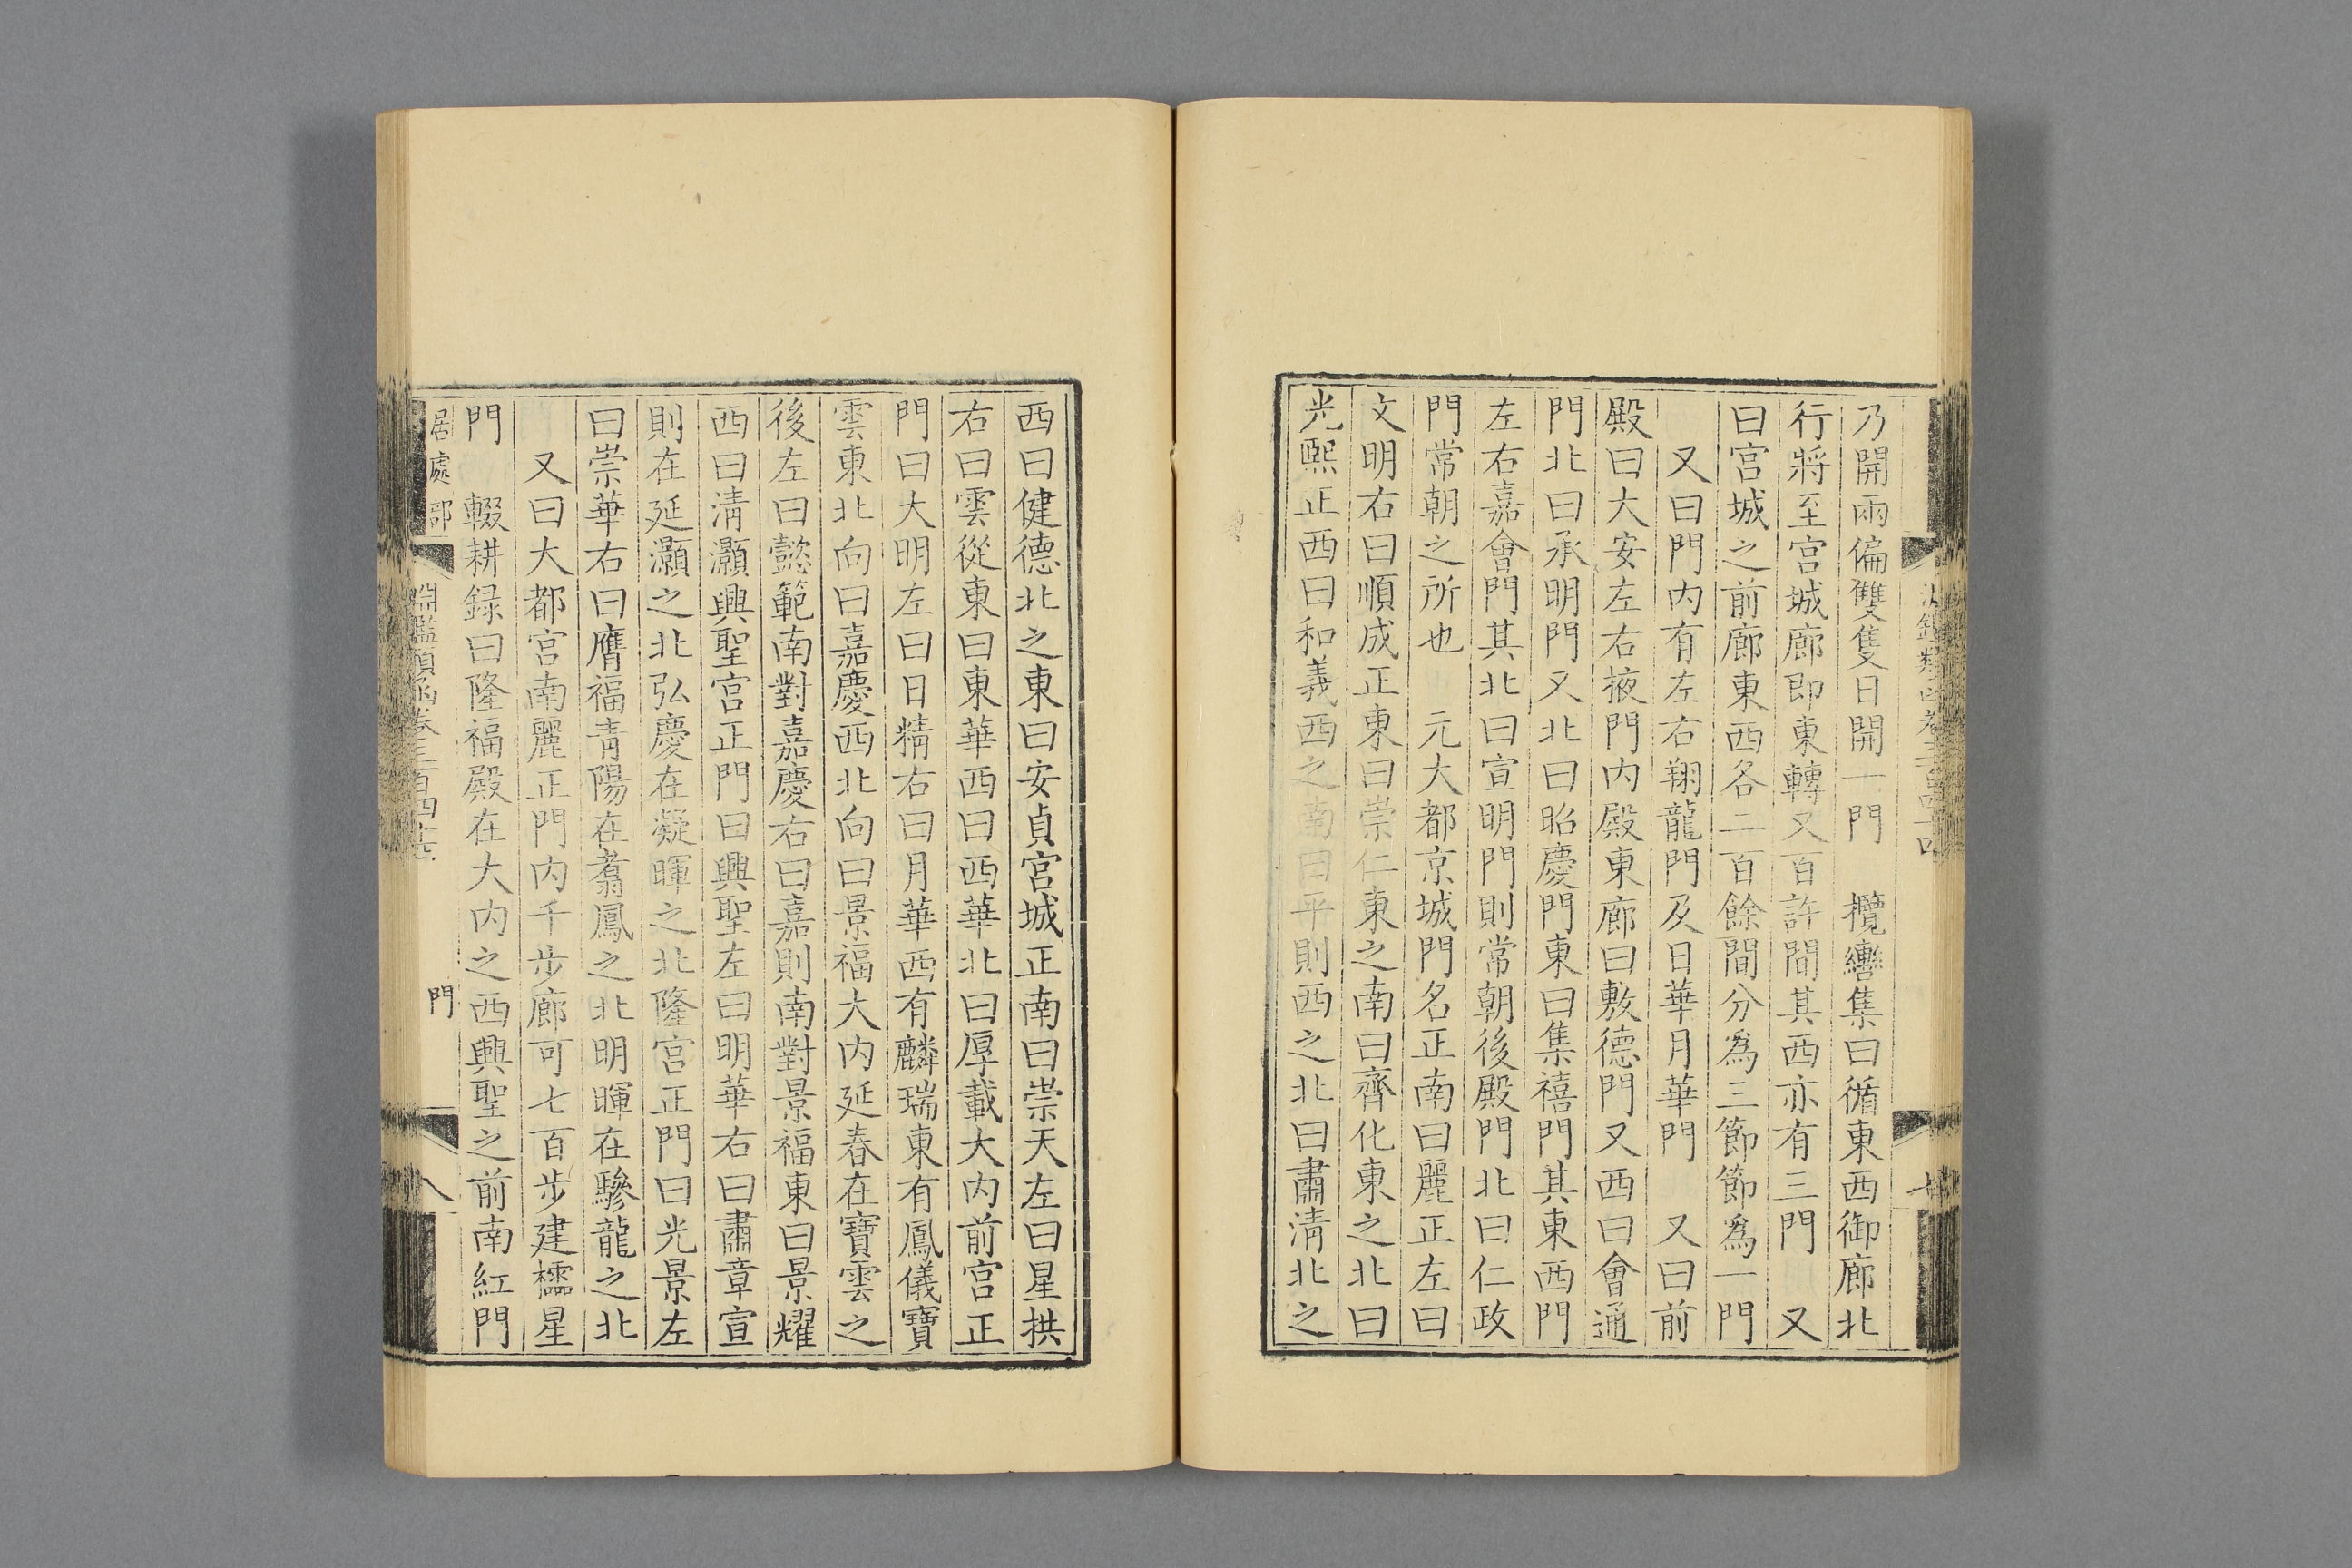 乃開兩偏雙隻日開一門　攬轡集曰循東西御廊北
行將至宮城廊即東轉又百許間其西亦有三門　又
曰宮城之前廊東西各二百餘間分爲三節節爲一門
又曰門内有左右翔龍門及日華月華門　又曰前
殿曰大安左右掖門内殿東廊曰敷德門又西曰會通
門北曰承明門又北曰昭慶門東曰集禧門其東西門
左右嘉會門其北曰宣明門則常朝後殿門北曰仁政
門常朝之所也　元大都京城門名正南曰麗正左曰
文明右曰順成正東曰崇仁東之南曰齊化東之北曰
光熙正西曰和義西之南曰平則西之北曰肅清北之
西曰健德北之東曰安貞宮城正南曰崇天左曰星拱
右曰雲從東曰東華西曰西華北曰厚載大内前宮正
門曰大明左曰日精右曰月華西有麟瑞東有鳳儀寶
雲東北向曰嘉慶西北向曰景福大内延春在寶雲之
後左曰懿範南對嘉慶右曰嘉則南對景福東曰景耀
西曰清灝興聖宮正門曰興聖左曰明華右曰肅章宣
則在延灝之北弘慶在凝暉之北隆宮正門曰光景左
曰崇華右曰膺福青陽在翥鳳之北明暉在驂龍之北
又曰大都宮南麗正門内千步廊可七百步建櫺星
門　輟耕録曰隆福殿在大内之西興聖之前南紅門
居處部
淵鑑類函卷三百四十
門
八